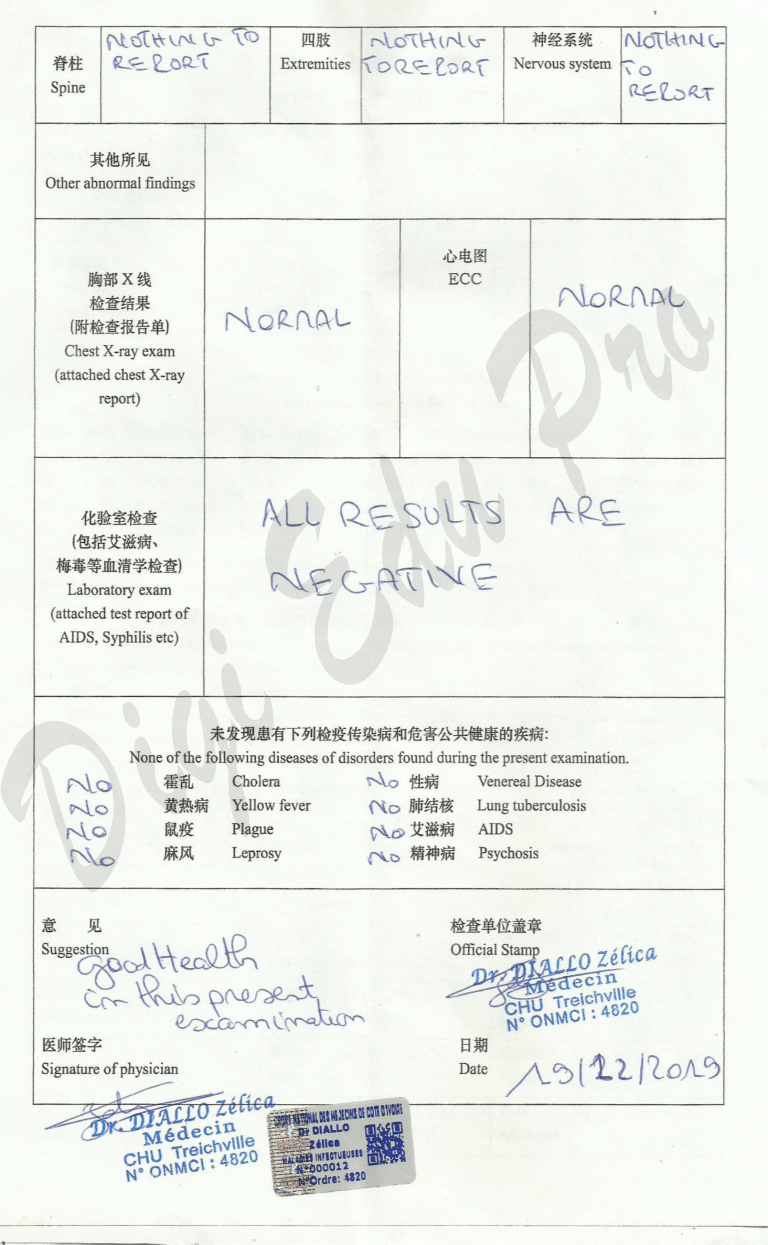 脊柱
Spine
NOTHING TO
REPORT
四肢
Extremities
NOTHING
TO REPORT
神经系统
Nervous system
NOTHING
TO
REPORT
其他所见
Other abnormal findings
胸部 X 线
检查结果
(附检查报告单)
Chest X-ray exam
(attached chest X-ray
report)
NORMAL
心电图
ECC
NORMAL
化验室检查
(包括艾滋病、
梅毒等血清学检查)
Laboratory exam
(attached test report of
AIDS, Syphilis etc)
ALL RESULTS ARE
NEGATIVE
Digi Edu Pro
未发现患有下列检疫传染病和危害公共健康的疾病:
None of the following diseases of disorders found during the present examination.
No 霍乱 Cholera No 性病 Venereal Disease
No 黄热病 Yellow fever No 肺结核 Lung tuberculosis
No 鼠疫 Plague No 艾滋病 AIDS
No 麻风 Leprosy No 精神病 Psychosis
意 见
Suggestion
good Health
in this present
examination
检查单位盖章
Official Stamp
Dr. DIALLO Zélica
Médecin
CHU Treichville
N° ONMCI : 4820
医师签字
Signature of physician
日期
Date
19/12/2019
Dr. DIALLO Zélica
Médecin
CHU Treichville
N° ONMCI : 4820
NATIONAL DES MEDECINS DE COTE D'IVOIRE
Dr DIALLO
Zélica
N°000012
N°Ordre: 4820